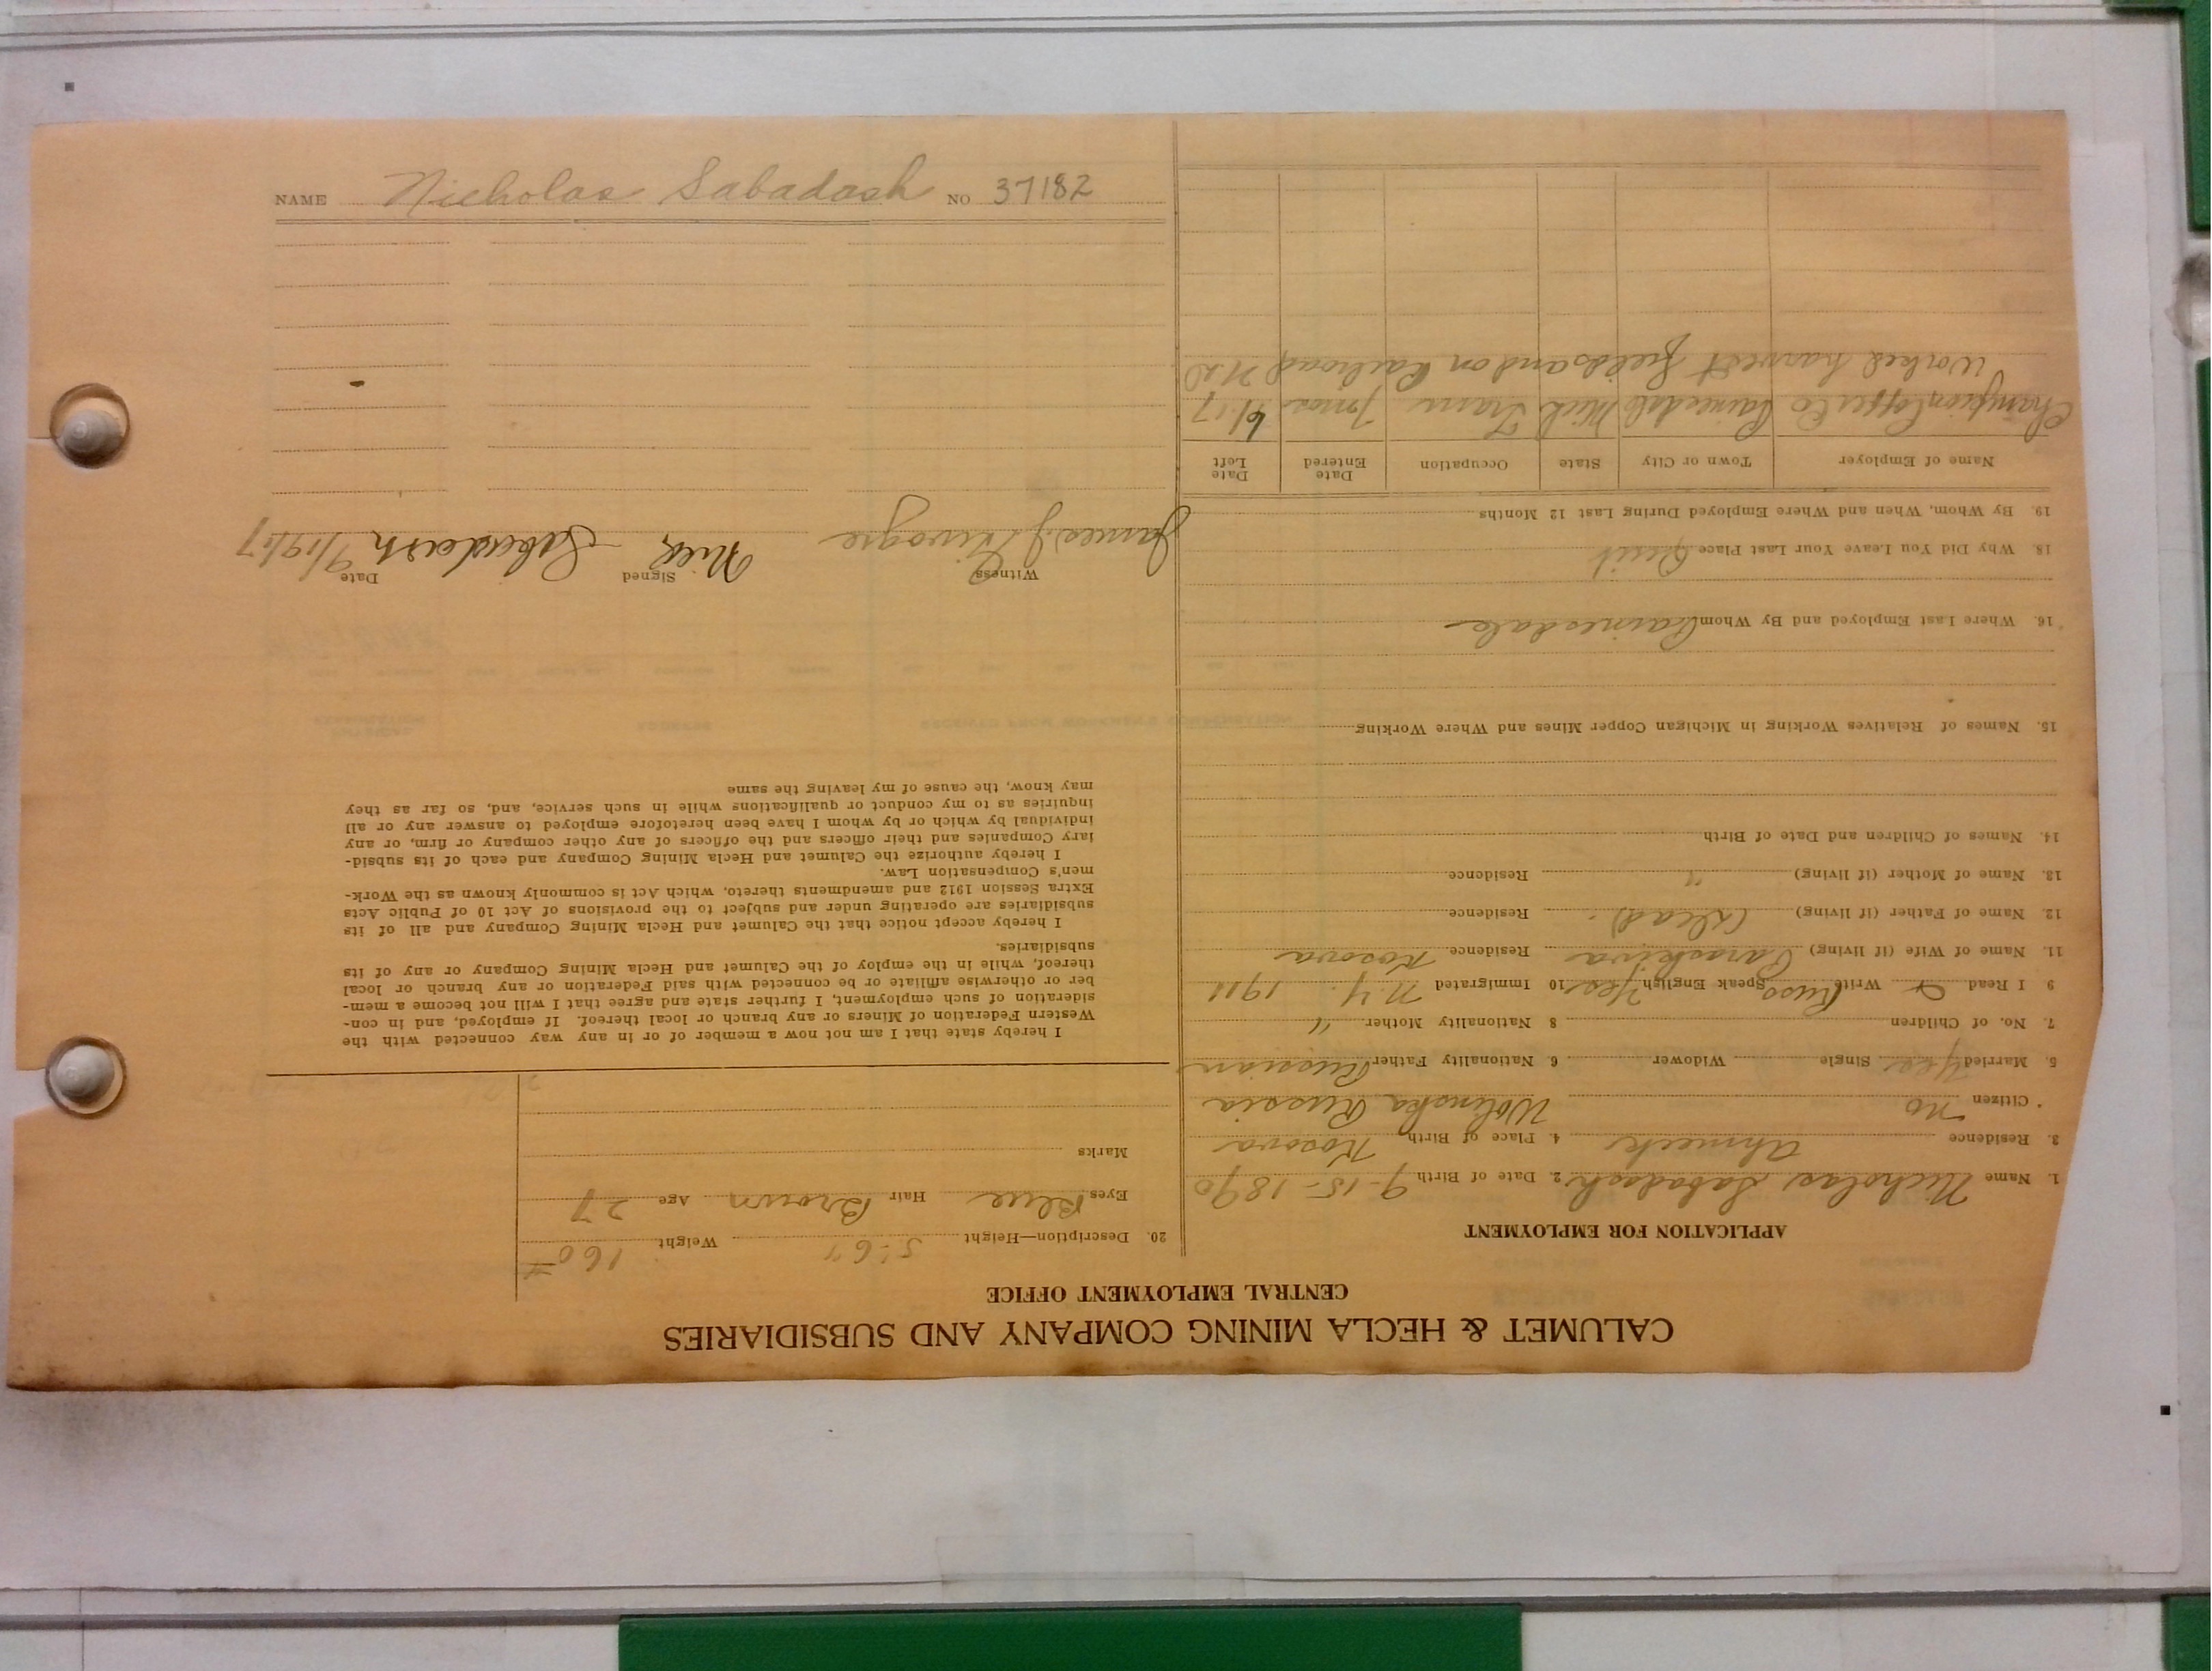 CALUMET & HECLA MINING COMPANY AND SUBSIDIARIES
CENTRAL EMPLOYMENT OFFICE
APPLICATION FOR EMPLOYMENT
1. Name Nicholas Sabadash 2. Date of Birth 9-15-1890
3. Residence Ahmeek 4. Place of Birth Kosova
Citizen no Wolinska Russia
5. Married Yes Single Widower 6. Nationality Father Russian
7. No. of Children 8 Nationality Mother "
9 I Read & Write Russ Speak English Yes 10 Immigrated N.Y. 1911
11. Name of Wife (if living) Paraskiva Residence Kosova
12. Name of Father (if living) (Dead) Residence
13. Name of Mother (if living) " Residence
14. Names of Children and Date of Birth
15. Names of Relatives Working in Michigan Copper Mines and Where Working
16. Where Last Employed and By Whom Painesdale
18. Why Did You Leave Your Last Place Quit
19. By Whom, When and Where Employed During Last 12 Months
Name of Employer Town or City State Occupation Date Entered Date Left
Champion Copper Co Painesdale Mich Tram 7 mos 6/17
Worked harvest fields and on Railroad N.D
20. Description—Height 5'6" Weight 160#
Eyes Blue Hair Brown Age 27
Marks
I hereby state that I am not now a member of or in any way connected with the
Western Federation of Miners or any branch or local thereof. If employed, and in con-
sideration of such employment, I further state and agree that I will not become a mem-
ber or otherwise affiliate or be connected with said Federation or any branch or local
thereof, while in the employ of the Calumet and Hecla Mining Company or any of its
subsidiaries.
I hereby accept notice that the Calumet and Hecla Mining Company and all of its
subsidiaries are operating under and subject to the provisions of Act 10 of Public Acts
Extra Session 1912 and amendments thereto, which Act is commonly known as the Work-
men's Compensation Law.
I hereby authorize the Calumet and Hecla Mining Company and each of its subsid-
iary Companies and their officers and the officers of any other company or firm, or any
individual by which or by whom I have been heretofore employed to answer any or all
inquiries as to my conduct or qualifications while in such service, and, so far as they
may know, the cause of my leaving the same
Witness Signed Date
James J Nick Sabadash 9/19/17
NAME Nicholas Sabadash NO 37182